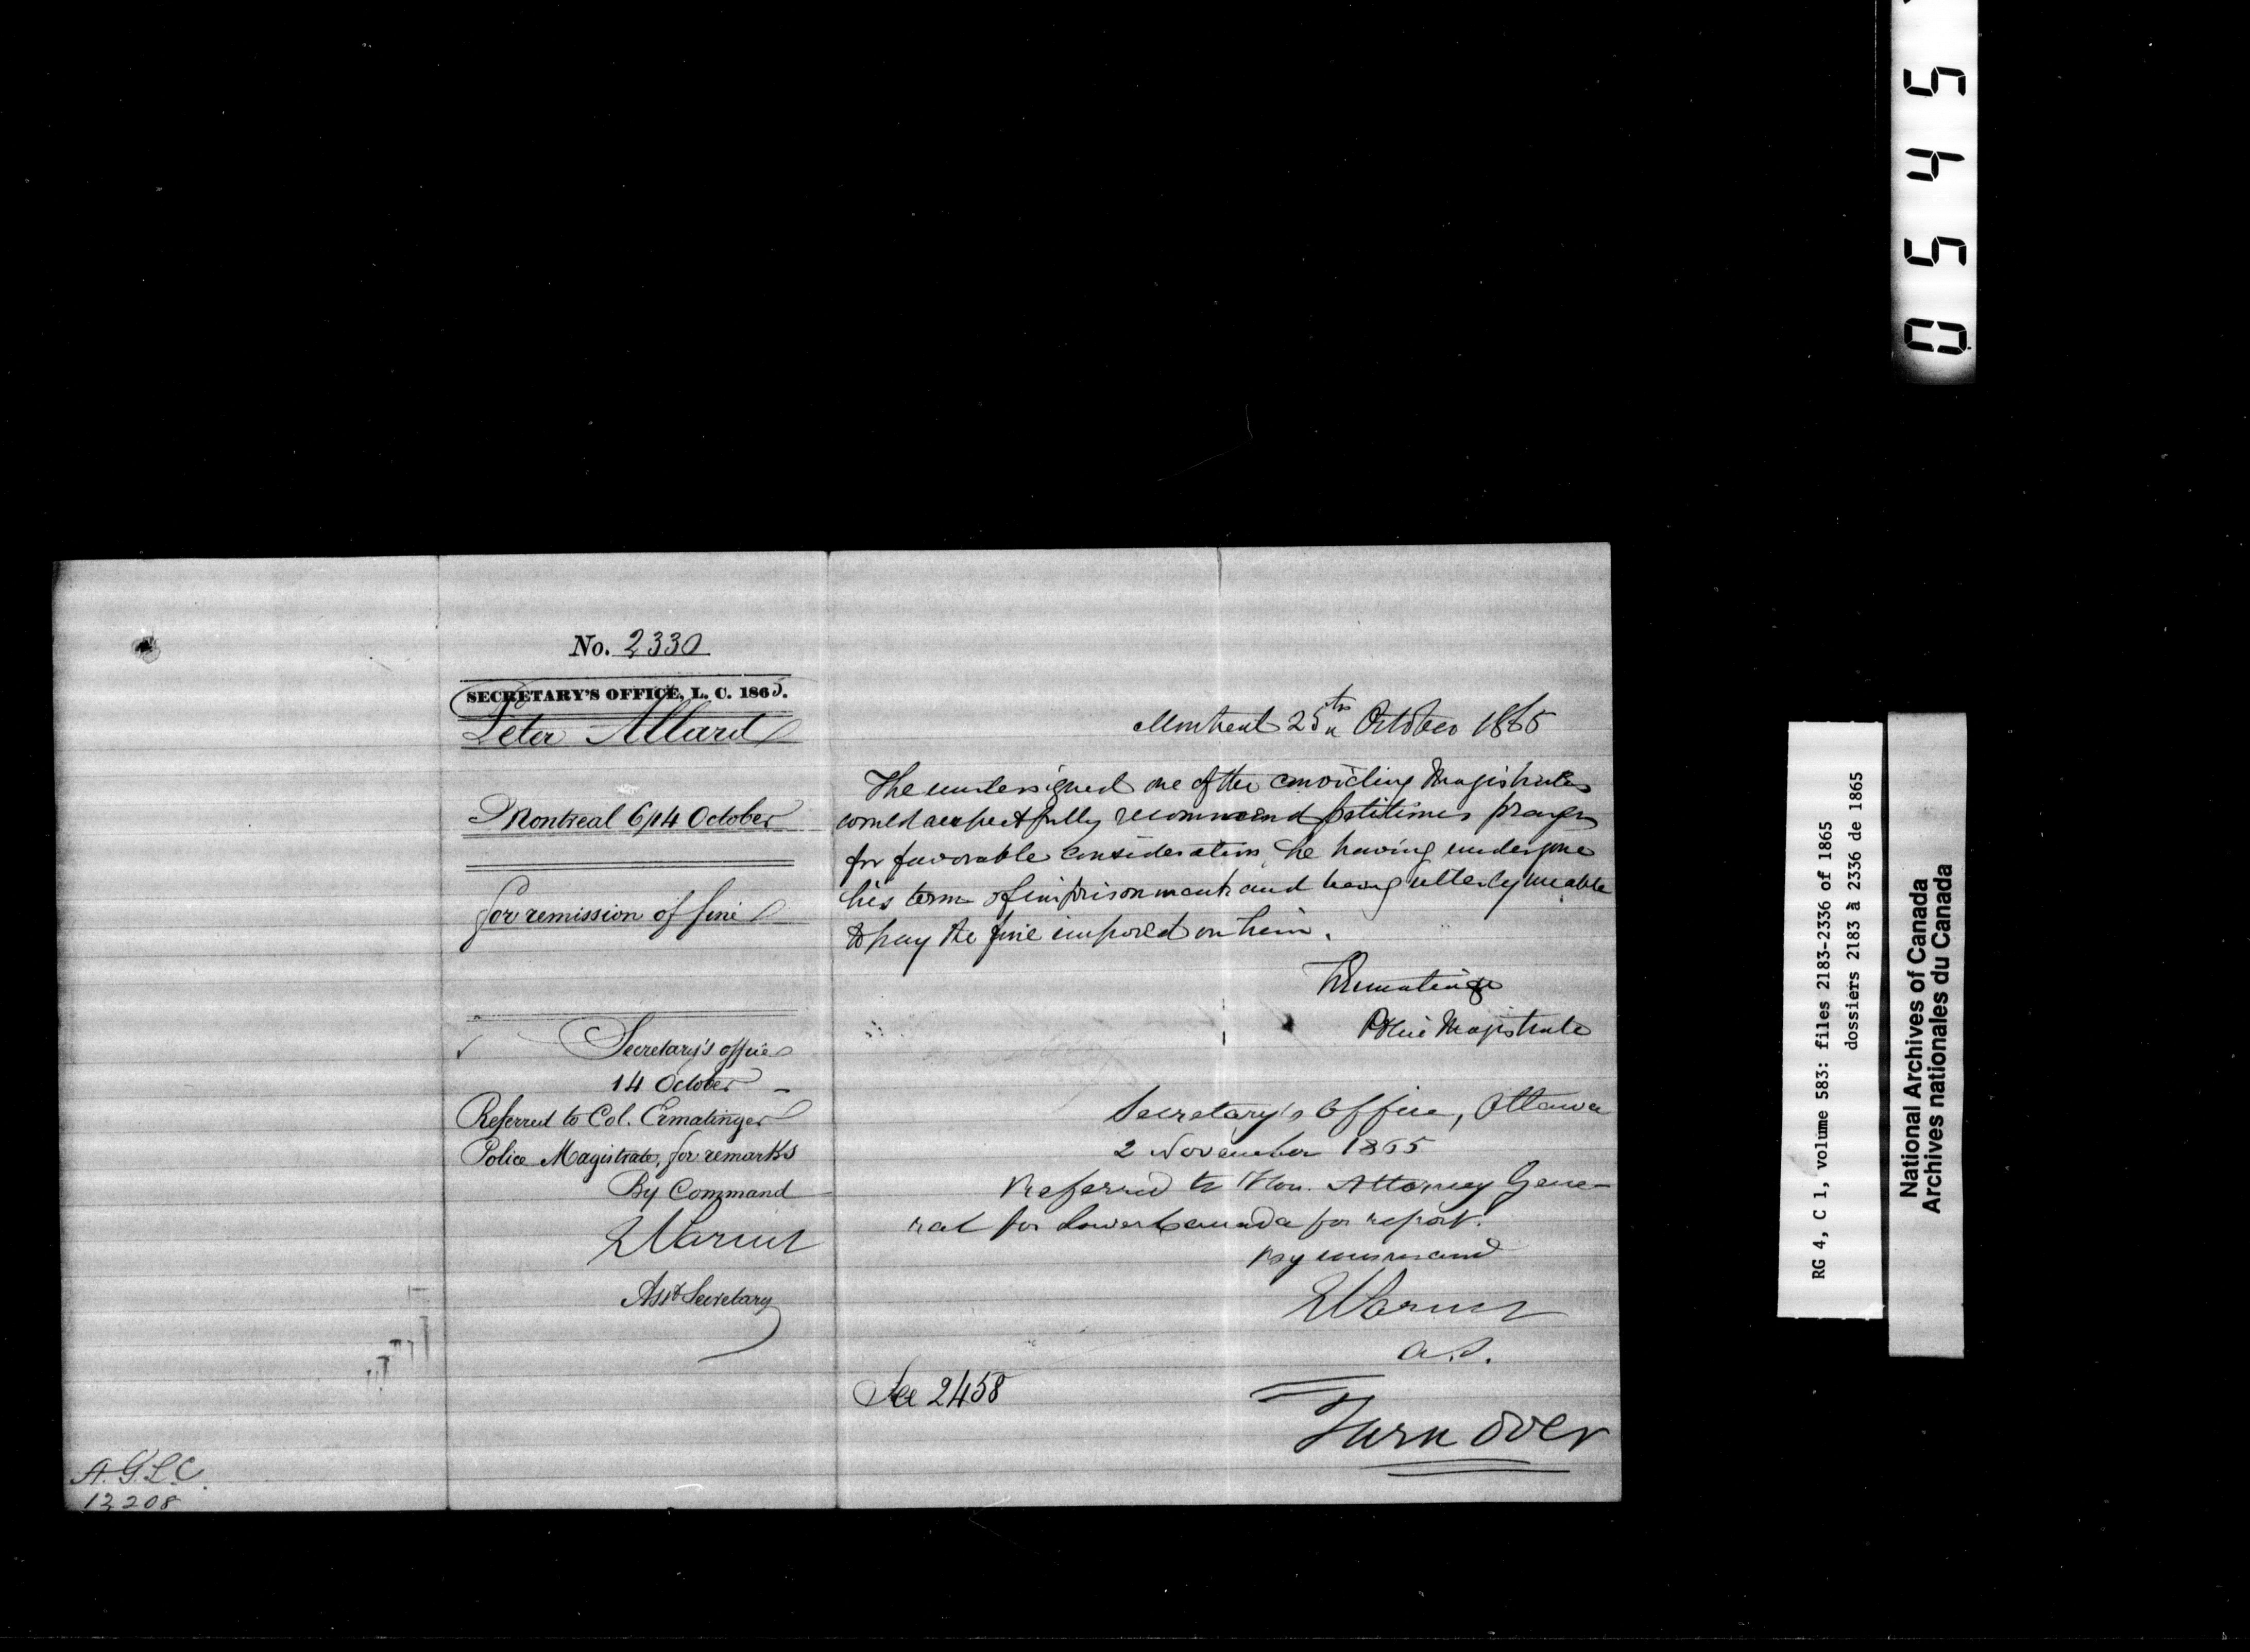 No. 2330
SECRETARY'S OFFICE, L. C. 1865.
Peter Allard
Montreal 6/14 October
for remission of fine
Secretary's office
14 October
Referred to Col. Ermatinger
Police Magistrate, for remarks
By Command
Asst Secretary
A.G.L.C.
12208
Montreal 25th October 1865
The undersigned one of the convicting Magistrates
would respectfully recommend petitioners prayer
for favorable consideration, he having undergone
his term of imprisonment and being utterly unable
to pay the fine imposed on him.
Ermatinger
Police Magistrate
Secretary's Office, Ottawa
2 November 1865
Referred to Hon. Attorney Gene-
ral for Lower Canada for report.
By command
A.S.
See 2458
Turn over
0545
RG 4, C 1, volume 583: files 2183-2336 of 1865
dossiers 2183 à 2336 de 1865
National Archives of Canada
Archives nationales du Canada